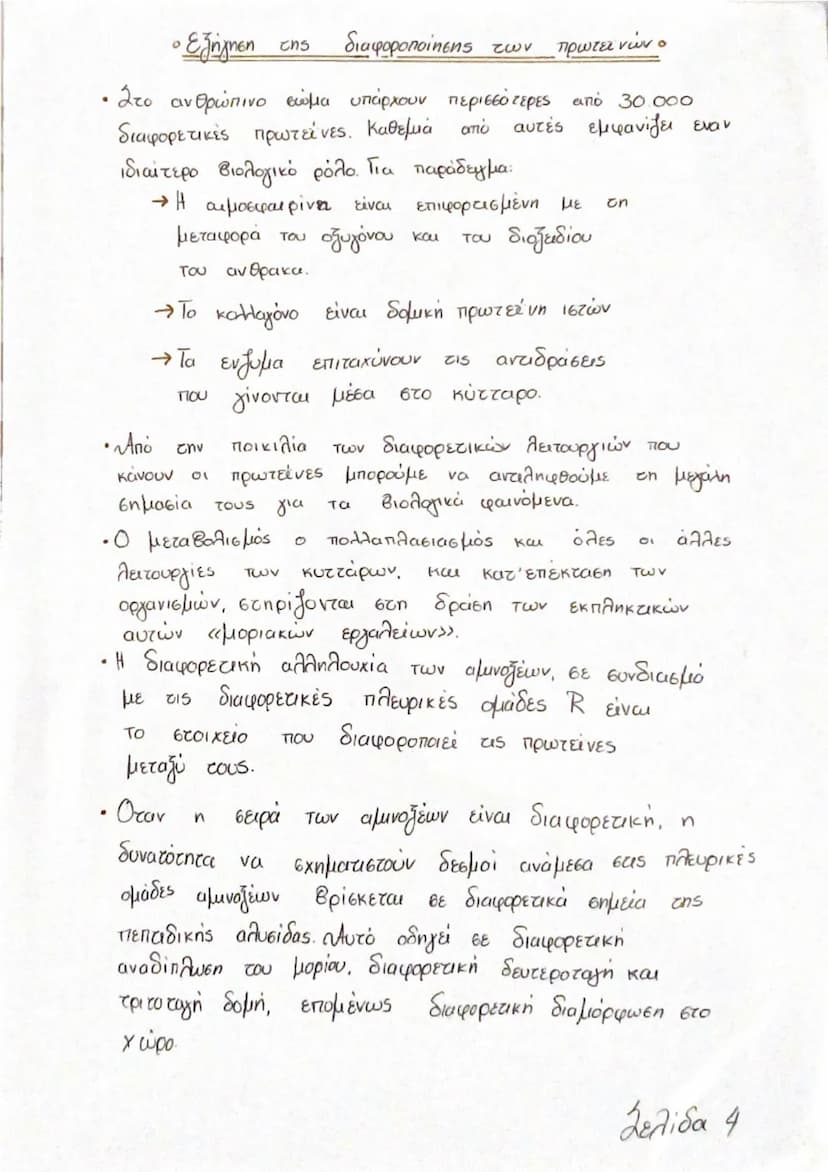 • Εξήγηση της διαφοροποίησης των πρωτεϊνών •
• Στο ανθρώπινο σώμα υπάρχουν περισσότερες από 30.000
διαφορετικές πρωτεΐνες. Καθεμιά από αυτές εμφανίζει έναν
ιδιαίτερο βιολογικό ρόλο. Για παράδειγμα:
→ Η αιμοσφαιρίνη είναι επιφορτισμένη με τη
μεταφορά του οξυγόνου και του διοξειδίου
του άνθρακα.
→ Το κολλαγόνο είναι δομική πρωτεΐνη ιστών
→ Τα ένζυμα επιταχύνουν τις αντιδράσεις
που γίνονται μέσα στο κύτταρο.
• Από την ποικιλία των διαφορετικών λειτουργιών που
κάνουν οι πρωτεΐνες μπορούμε να αντιληφθούμε τη μεγάλη
σημασία τους για τα βιολογικά φαινόμενα.
• Ο μεταβολισμός ο πολλαπλασιασμός και όλες οι άλλες
λειτουργίες των κυττάρων, και κατ' επέκταση των
οργανισμών, στηρίζονται στη δράση των εκπληκτικών
αυτών «μοριακών εργαλείων».
• Η διαφορετική αλληλουχία των αμινοξέων, σε συνδιασμό
με τις διαφορετικές πλευρικές ομάδες R είναι
το στοιχείο που διαφοροποιεί τις πρωτεΐνες
μεταξύ τους.
• Όταν η σειρά των αμινοξέων είναι διαφορετική, η
δυνατότητα να σχηματιστούν δεσμοί ανάμεσα στις πλευρικές
ομάδες αμινοξέων βρίσκεται σε διαφορετικά σημεία της
πεπτιδικής αλυσίδας. Αυτό οδηγεί σε διαφορετική
αναδίπλωση του μορίου, διαφορετική δευτεροταγή και
τριτοταγή δομή, επομένως διαφορετική διαμόρφωση στο
χώρο.
Σελίδα 4